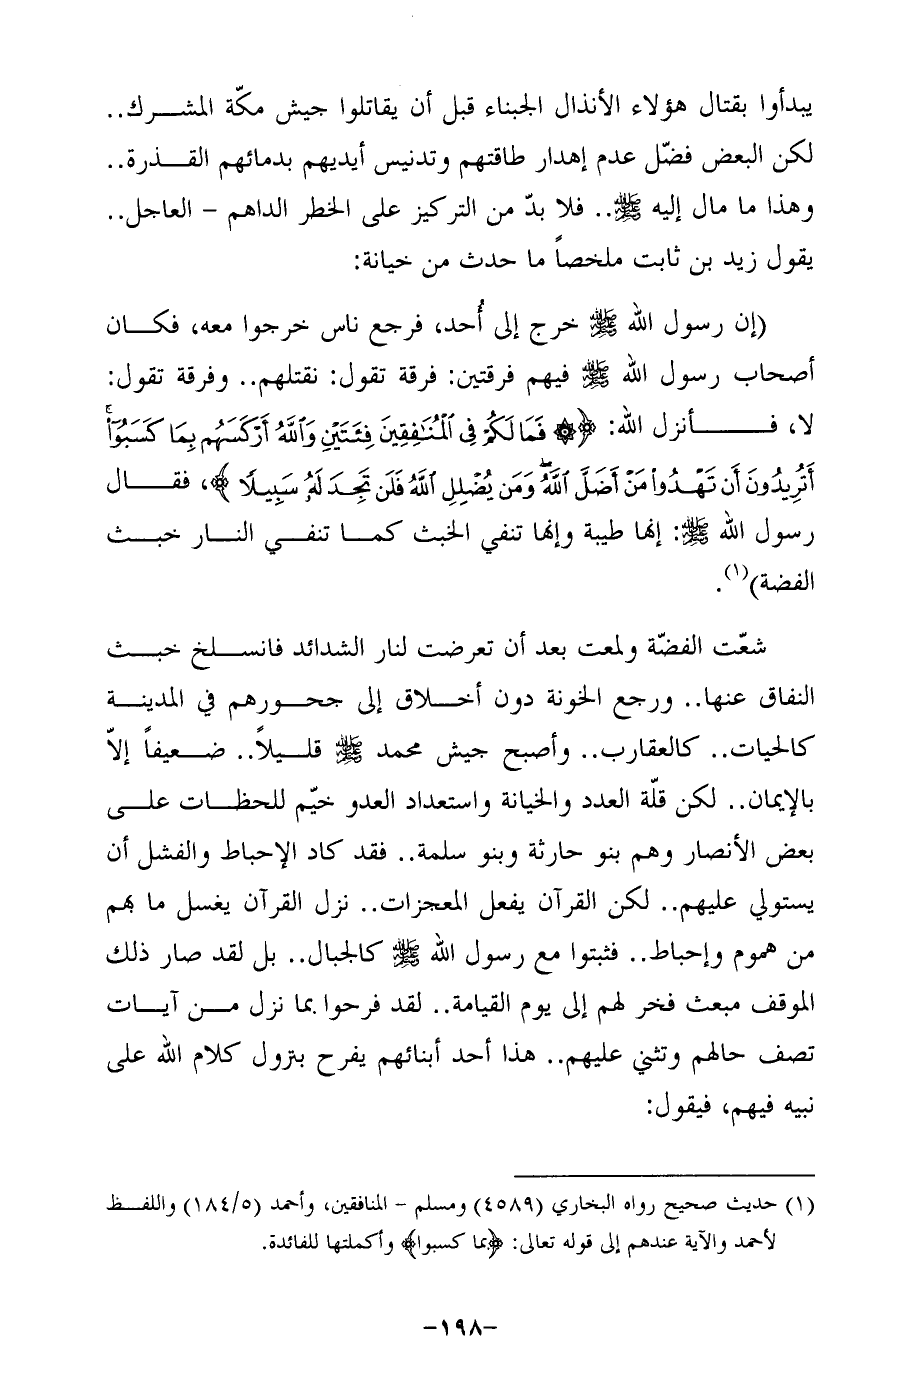 يبدأوا بقتال هؤلاء الأنذال الجبناء قبل أن يقاتلوا جيش مكّة المشرك..
لكن البعض فضّل عدم إهدار طاقتهم وتدنيس أيديهم بدمائهم القذرة..
وهذا ما مال إليه ﷺ.. فلا بدّ من التركيز على الخطر الداهم – العاجل..
يقول زيد بن ثابت ملخصاً ما حدث من خيانة:
(إن رسول الله ﷺ خرج إلى أُحد، فرجع ناس خرجوا معه، فكان
أصحاب رسول الله ﷺ فيهم فرقتين: فرقة تقول: نقتلهم.. وفرقة تقول:
لا، فأنزل الله: ﴿۞ فَمَا لَكُمْ فِي ٱلْمُنَٰفِقِينَ فِئَتَيْنِ وَٱللَّهُ أَرْكَسَهُم بِمَا كَسَبُوٓا۟ۚ
أَتُرِيدُونَ أَن تَهْدُوا۟ مَنْ أَضَلَّ ٱللَّهُۖ وَمَن يُضْلِلِ ٱللَّهُ فَلَن تَجِدَ لَهُۥ سَبِيلًا ﴾، فقال
رسول الله ﷺ: إنها طيبة وإنها تنفي الخبث كما تنفي النار خبث
الفضة)(١).
شعّت الفضّة ولمعت بعد أن تعرضت لنار الشدائد فانسلخ خبث
النفاق عنها.. ورجع الخونة دون أخلاق إلى جحورهم في المدينة
كالحيات.. كالعقارب.. وأصبح جيش محمد ﷺ قليلاً.. ضعيفاً إلاّ
بالإيمان.. لكن قلّة العدد والخيانة واستعداد العدو خيّم للحظات على
بعض الأنصار وهم بنو حارثة وبنو سلمة.. فقد كاد الإحباط والفشل أن
يستولي عليهم.. لكن القرآن يفعل المعجزات.. نزل القرآن يغسل ما بهم
من هموم وإحباط.. فثبتوا مع رسول الله ﷺ كالجبال.. بل لقد صار ذلك
الموقف مبعث فخر لهم إلى يوم القيامة.. لقد فرحوا بما نزل من آيات
تصف حالهم وتثني عليهم.. هذا أحد أبنائهم يفرح بنزول كلام الله على
نبيه فيهم، فيقول:
(١) حديث صحيح رواه البخاري (٤٥٨٩) ومسلم – المنافقين، وأحمد (١٨٤/٥) واللفظ
لأحمد والآية عندهم إلى قوله تعالى: ﴿بما كسبوا﴾ وأكملتها للفائدة.
-١٩٨-